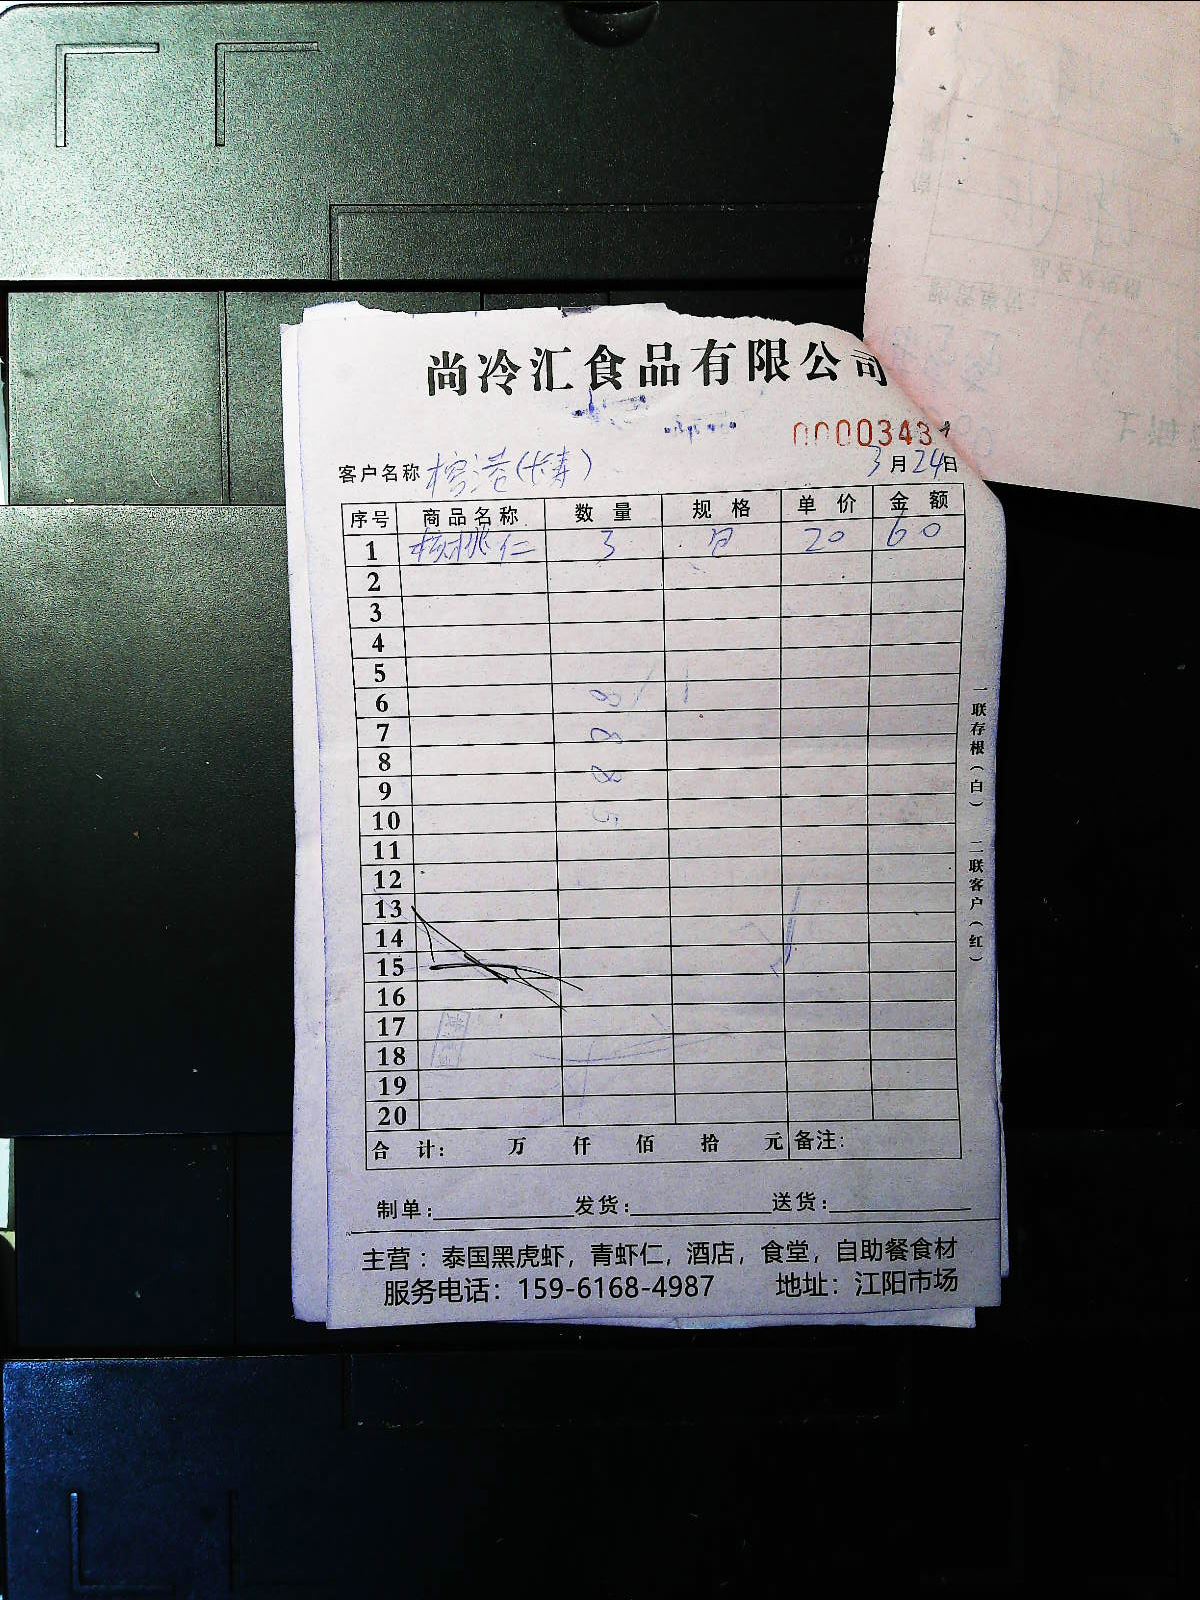 尚冷汇食品有限公司
000034
客户名称 (长寿) 3月24日
序号 商品名称 数量 规格 单价 金额
1 核桃仁 3 包 20 60
2
3
4
5
6
7
8
9
10
11
12
13
14
15
16
17
18
19
20
合 计: 万 仟 佰 拾 元 备注:
制单: 发货: 送货:
主营：泰国黑虎虾，青虾仁，酒店，食堂，自助餐食材
服务电话：159-6168-4987 地址：江阳市场
一联存根（白） 二联客户（红）